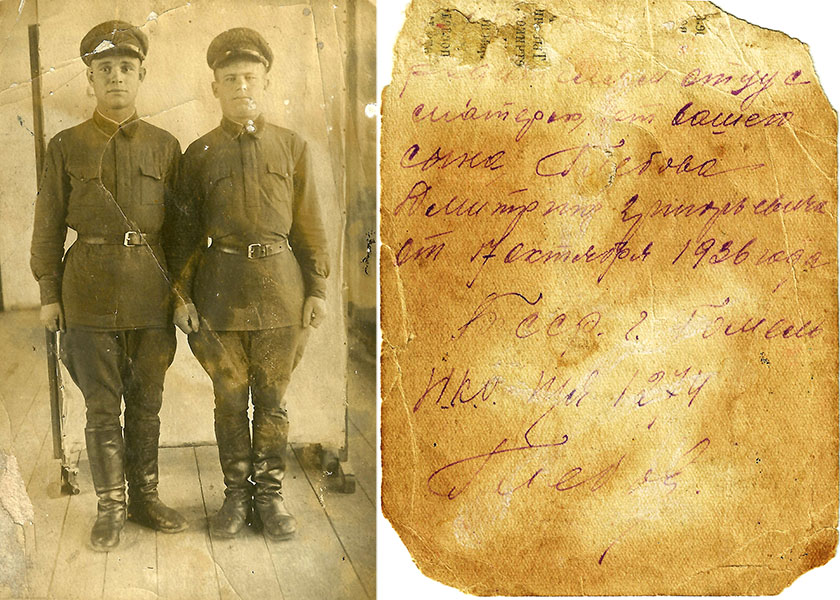 отцу с
матерью, от вашего
сына Глебова
Дмитрия Григорьевича
от 17 октября 1936 года
БССР. г. Гомель
Н.К.О. п/я 1274
Глебов.